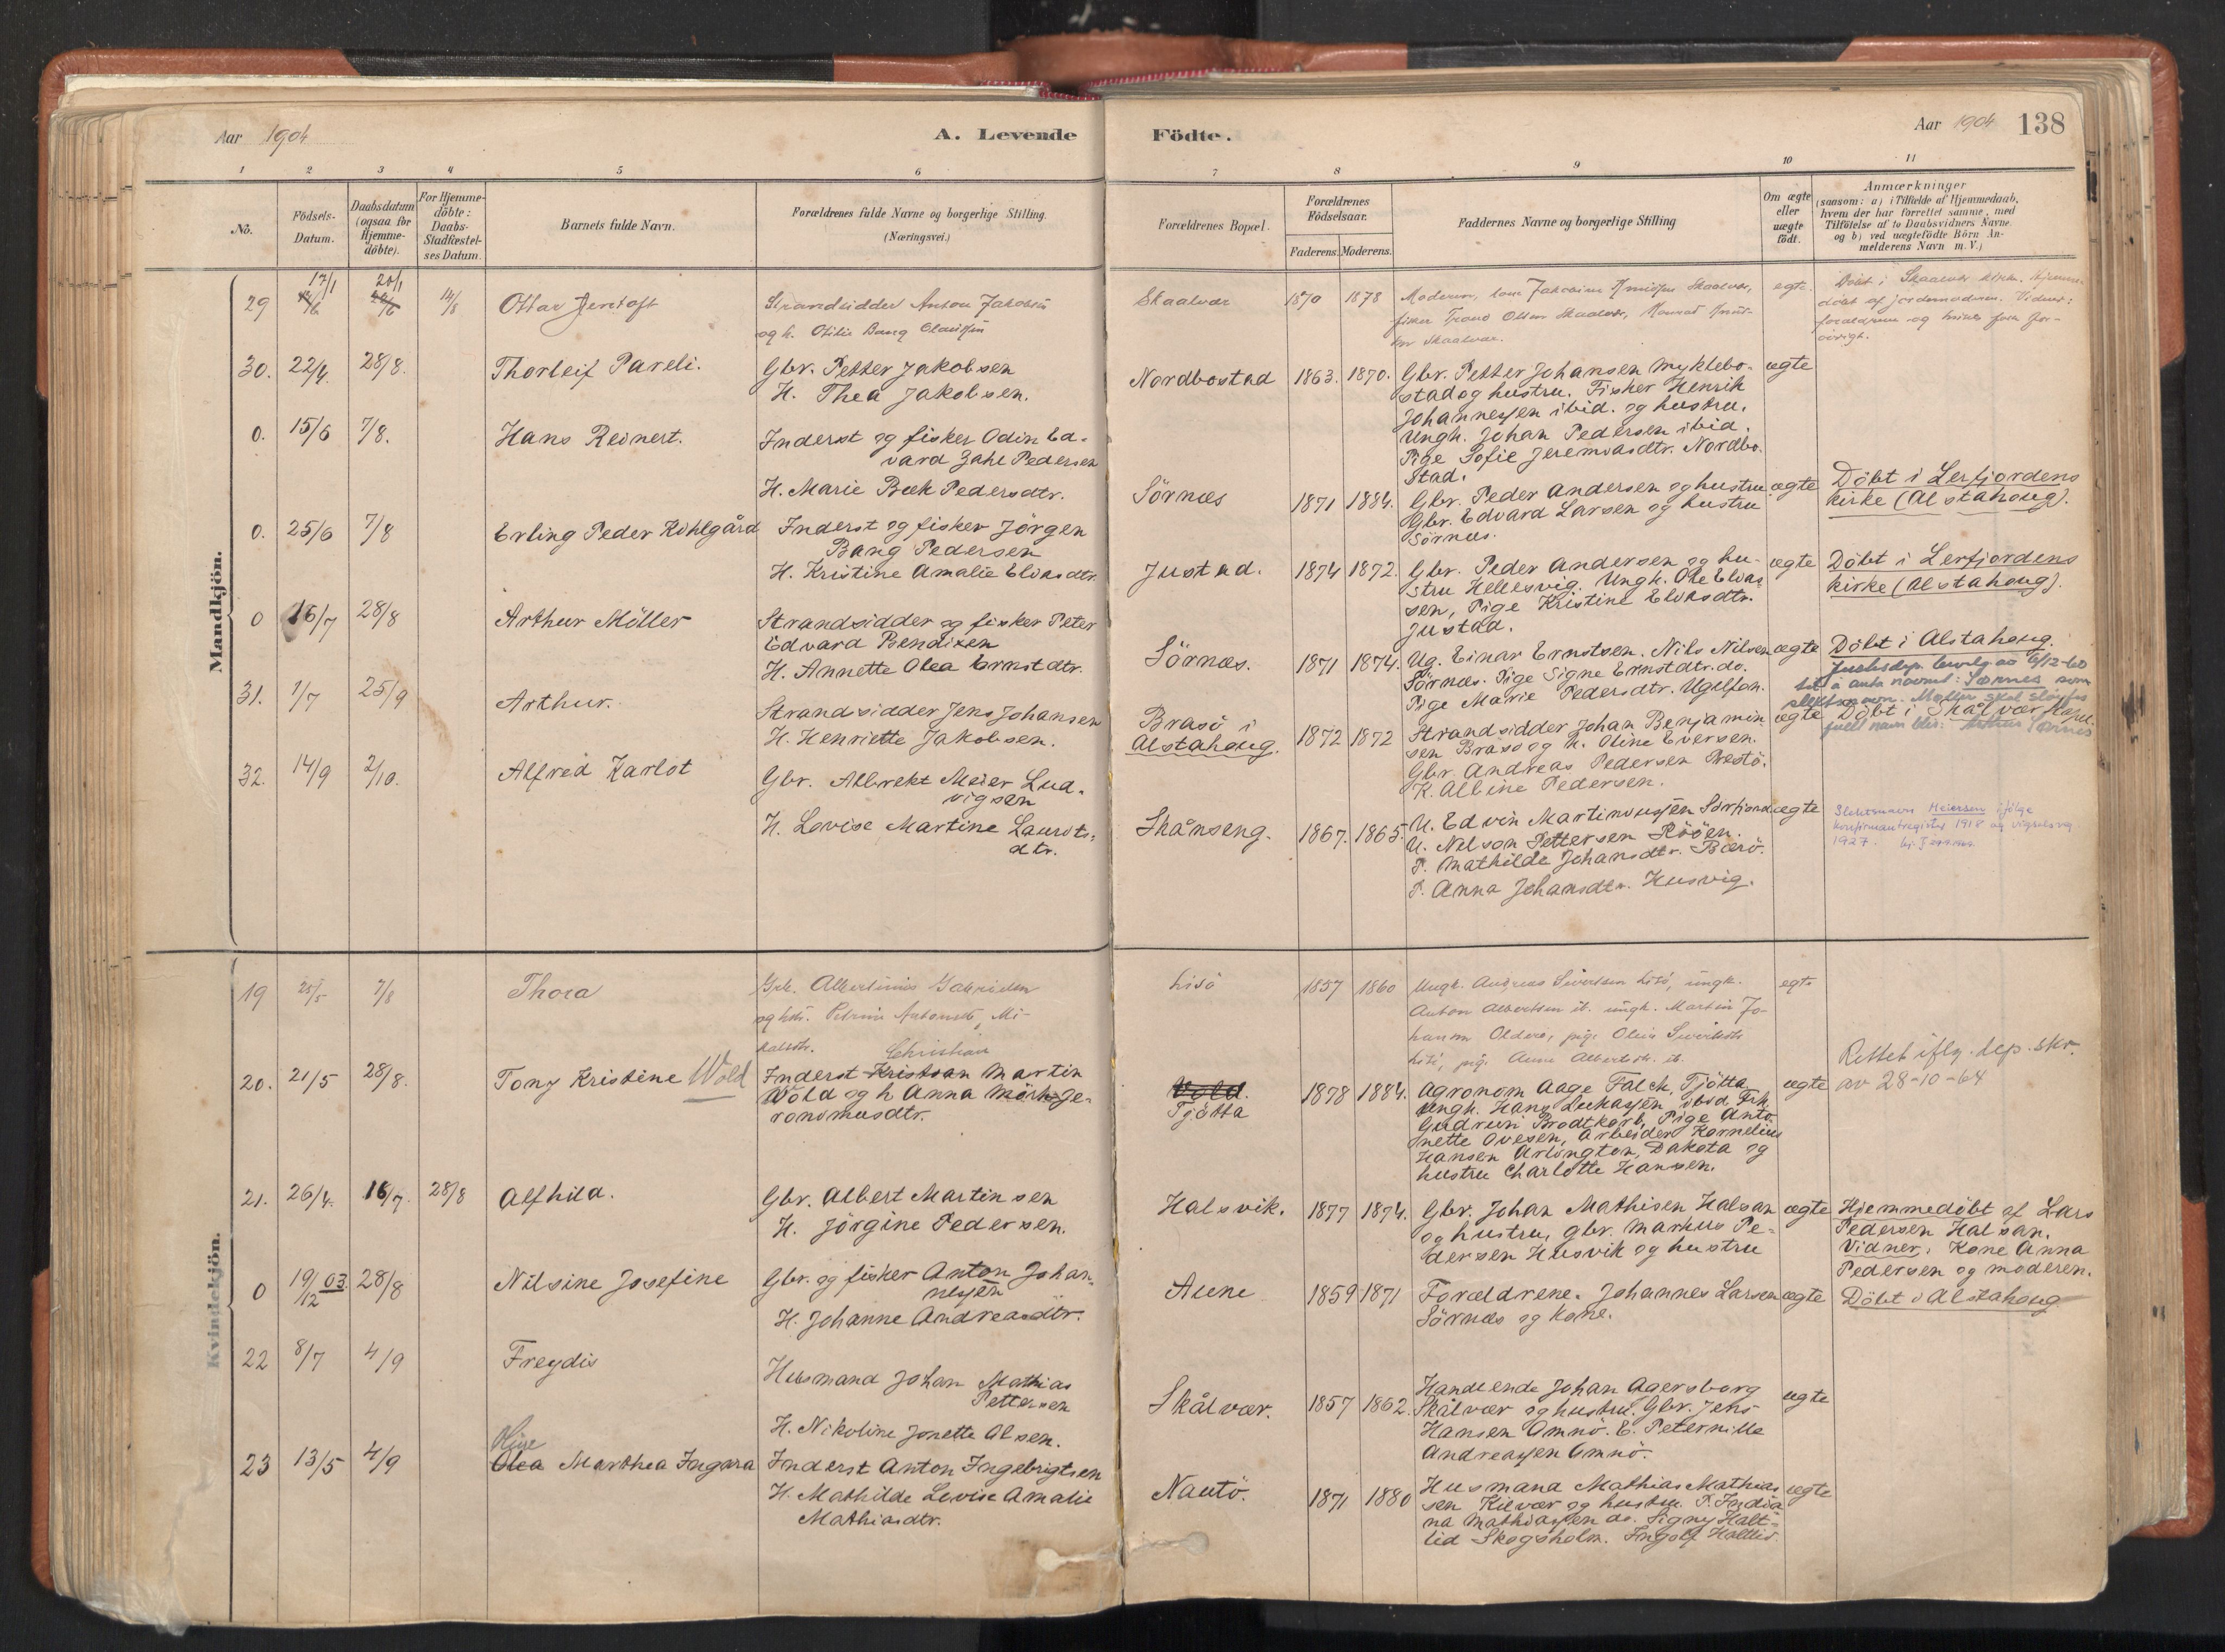 Aar 1904
A. Levende Födte.
Aar 1904 138
1 2 3 4 5 6 7 8 9 10 11
No.
Födsels-
Datum.
Daabsdatum
(ogsaa for
Hjemme-
döbte).
For Hjemme-
döbte:
Daabs-
Stadfæstel-
ses Datum.
Barnets fulde Navn.
Forældrenes fulde Navne og borgerlige Stilling.
(Næringsvei.)
Forældrenes Bopæl.
Forældrenes
Födselsaar.
Faderens. Moderens.
Faddernes Navne og borgerlige Stilling
Om ægte
eller
uægte
födt.
Anmærkninger
(saasom: a) i Tilfælde af Hjemmedaab,
hvem der har forrettet samme, med
Tilföielse af to Daabsvidners Navne
og b) ved uægtefödte Börn An-
melderens Navn m. V.)
Mandkjön.
29 17/1 20/1 14/8 Ottar Jentoft
Strandsidder Anton Jakobsen
og h. Otilie Bang Clausen
Skaalvær 1870 1878
Moderen, Jakobine Skaalvær,
fisker Trond Olsen Skaalvær, Konrad
Skaalvær.
egte.
Döbt i Skaalvær kirke. Hjemme-
döbt af jordemoderen. Vidner:
forældrene og
30. 22/4. 28/8. Thorleif Pareli.
Gbr. Petter Jakobsen
H. Thea Jakobsen.
Nordbostad 1863. 1870.
Gbr. Petter Johansen Myklebo-
stad og hustru. Fisker Henrik
Johannessen ibid. og hustru.
Ungk. Johan Pedersen ibid.
Pige Sofie Jeremiasdtr. Nordbo-
stad.
ægte
0. 15/6 7/8. Hans Reinert.
Inderst og fisker Odin Ed-
vard Zahl Pedersen
H. Marie Bæk Pedersdtr.
Sörnæs 1871 1884.
Gbr. Peder Andersen og hustru
Gbr. Edvard Larsen og hustru
Sörnæs.
ægte
Döbt i Lerfjordens
kirke (Alstahoug).
0. 25/6 7/8 Erling Peder Kohlgård
Inderst og fisker Jörgen
Bang Pedersen
H. Kristine Amalie Eliasdtr.
Justad. 1874 1872.
Gbr. Peder Andersen og hu-
stru Hellesvig. Ungk. Ole Elias
sen, Pige Kristine Eliasdtr.
Justad.
ægte
Döbt i Lerfjordens
kirke (Alstahoug).
0 16/7 28/8 Arthur Möller
Strandsidder og fisker Peter
Edvard Bendixen
H. Annette Olea Ernstdtr.
Sörnæs. 1871 1874.
Ug. Einar Ernstsen. Nils Nilsen
Sörnæs. Pige Signe Ernstdtr. do.
Pige Marie Pedersdtr.
ægte
Döbt i Alstahoug.
Justisdep. bevilg. av 6/12-60
til å anta navnet: Sørnes som
slektsnavn. Møller skal sløyfes
fulle navn blir: Arthur Sørnes
31. 1/7 25/9 Arthur.
Strandsidder Jens Johansen
H. Henriette Jakobsen.
Brasö i
Alstahoug. 1872 1872
Strandsidder Johan Benjamin
sen Brasö og h. Oline Eversen.
Gbr. Andreas Pedersen Prestö.
K. Albine Pedersen.
ægte
Döbt i Skålvær kapel.
32. 14/9 2/10. Alfred Karlot
Gbr. Albrekt Meier Lud-
vigsen
H. Lovise Martine Laurits-
dtr.
Skånseng. 1867. 1865.
U. Edvin Martinussen Sörfjord
U. Nelson Pettersen Rööen.
P. Mathilde Johansdtr. Bærö.
P. Anna Johansdtr. Husvig.
ægte
Slektsnavn Meiersen ifølge
konfirmantregister 1918 og vigselsreg
1927.
Kvindekjön.
19 25/5 7/8 Thora
Gbr. Albertinus Gabrielsen
og hst. Petrine Antonette Mi-
kalsdtr.
Lisö 1857 1860
Ungk. Andreas Sivertsen Lisö, ungk.
Anton Albertsen ib. ungk. Martin Jo-
hansen Olderö, pige Olea Sivertsdtr
Lisö, pige Anna Albertsdtr. ib.
egte
20. 21/5 28/8. Tony Kristine Wold
Christian
Inderst Kristian Martin
Wold og h Anna Mörk Ge-
ronimusdtr.
Vold.
Tjötta 1878 1884.
Agronom Aage Falch, Tjötta
Ungk. Hans Lukassen, ibid. Frk.
Gudrun Brodtkorb, Pige Anto-
nette Ovesen, Arbeider Kornelius
Hansen Arlington, Dakota og
hustru Charlotte Hansen.
ægte
Rettet iflg. dep. skr.
av 28-10-64
21. 26/4. 16/7. 28/8 Alfhild.
Gbr. Albert Martinsen
H. Jörgine Pedersen.
Halsvik. 1877 1874.
Gbr. Johan Mathisen Halsan
og hustru, gbr. Markus Pe-
dersen Husvik og hustru
ægte
Hjemmedöbt af Lars
Pedersen Halsan.
Vidner: Kone Anna
Pedersen og moderen.
0 19/12 03. 28/8 Nilsine Josefine
Gbr. og fisker Anton Johan-
nessen
H. Johanne Andreasdtr.
Aune 1859 1871
Forældrene. Johannes Larsen
Sörnæs og kone.
ægte
Döbt i Alstahoug
22 8/7 4/9 Freydis
Husmand Johan Mathias
Pettersen
H. Nikoline Jonette Olsen.
Skålvær. 1857 1862.
Handlende Johan Agersborg
Skålvær og hustru. Gbr. Jens
Hansen Omnö. E. Peternille
Andreassen Omnö.
ægte
Oline
23 13/5 4/9 Olea Marthea Ingara
Inderst Anton Ingebrigtsen
H. Mathilde Lovise Amalie
Mathiasdtr.
Nautö. 1871 1880
Husmand Mathias Mathias
sen Kilvær og hustru. P. India
na Mathiassen do. Signy Halt-
lid Skogsholm. Ingolf Haltlid.
ægte